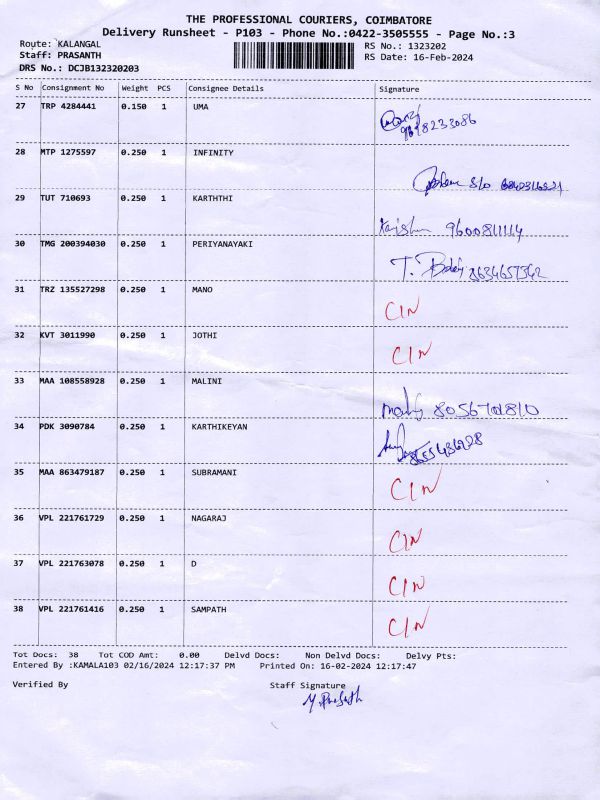 THE PROFESSIONAL COURIERS, COIMBATORE
Delivery Runsheet - P103 - Phone No.:0422-3505555 - Page No.:3
Route: KALANGAL RS No.: 1323202
Staff: PRASANTH RS Date: 16-Feb-2024
DRS No.: DCJB132320203
S No Consignment No Weight PCS Consignee Details Signature
27 TRP 4284441 0.150 1 UMA
28 MTP 1275597 0.250 1 INFINITY
29 TUT 710693 0.250 1 KARTHTHI
9600811114
30 TMG 200394030 0.250 1 PERIYANAYAKI
8634657342
31 TRZ 135527298 0.250 1 MANO
CIN
32 KVT 3011990 0.250 1 JOTHI
CIN
33 MAA 108558928 0.250 1 MALINI
34 PDK 3090784 0.250 1 KARTHIKEYAN
35 MAA 863479187 0.250 1 SUBRAMANI
CIN
36 VPL 221761729 0.250 1 NAGARAJ
CIN
37 VPL 221763078 0.250 1 D
CIN
38 VPL 221761416 0.250 1 SAMPATH
CIN
Tot Docs: 38 Tot COD Amt: 0.00 Delvd Docs: Non Delvd Docs: Delvy Pts:
Entered By :KAMALA103 02/16/2024 12:17:37 PM Printed On: 16-02-2024 12:17:47
Verified By Staff Signature